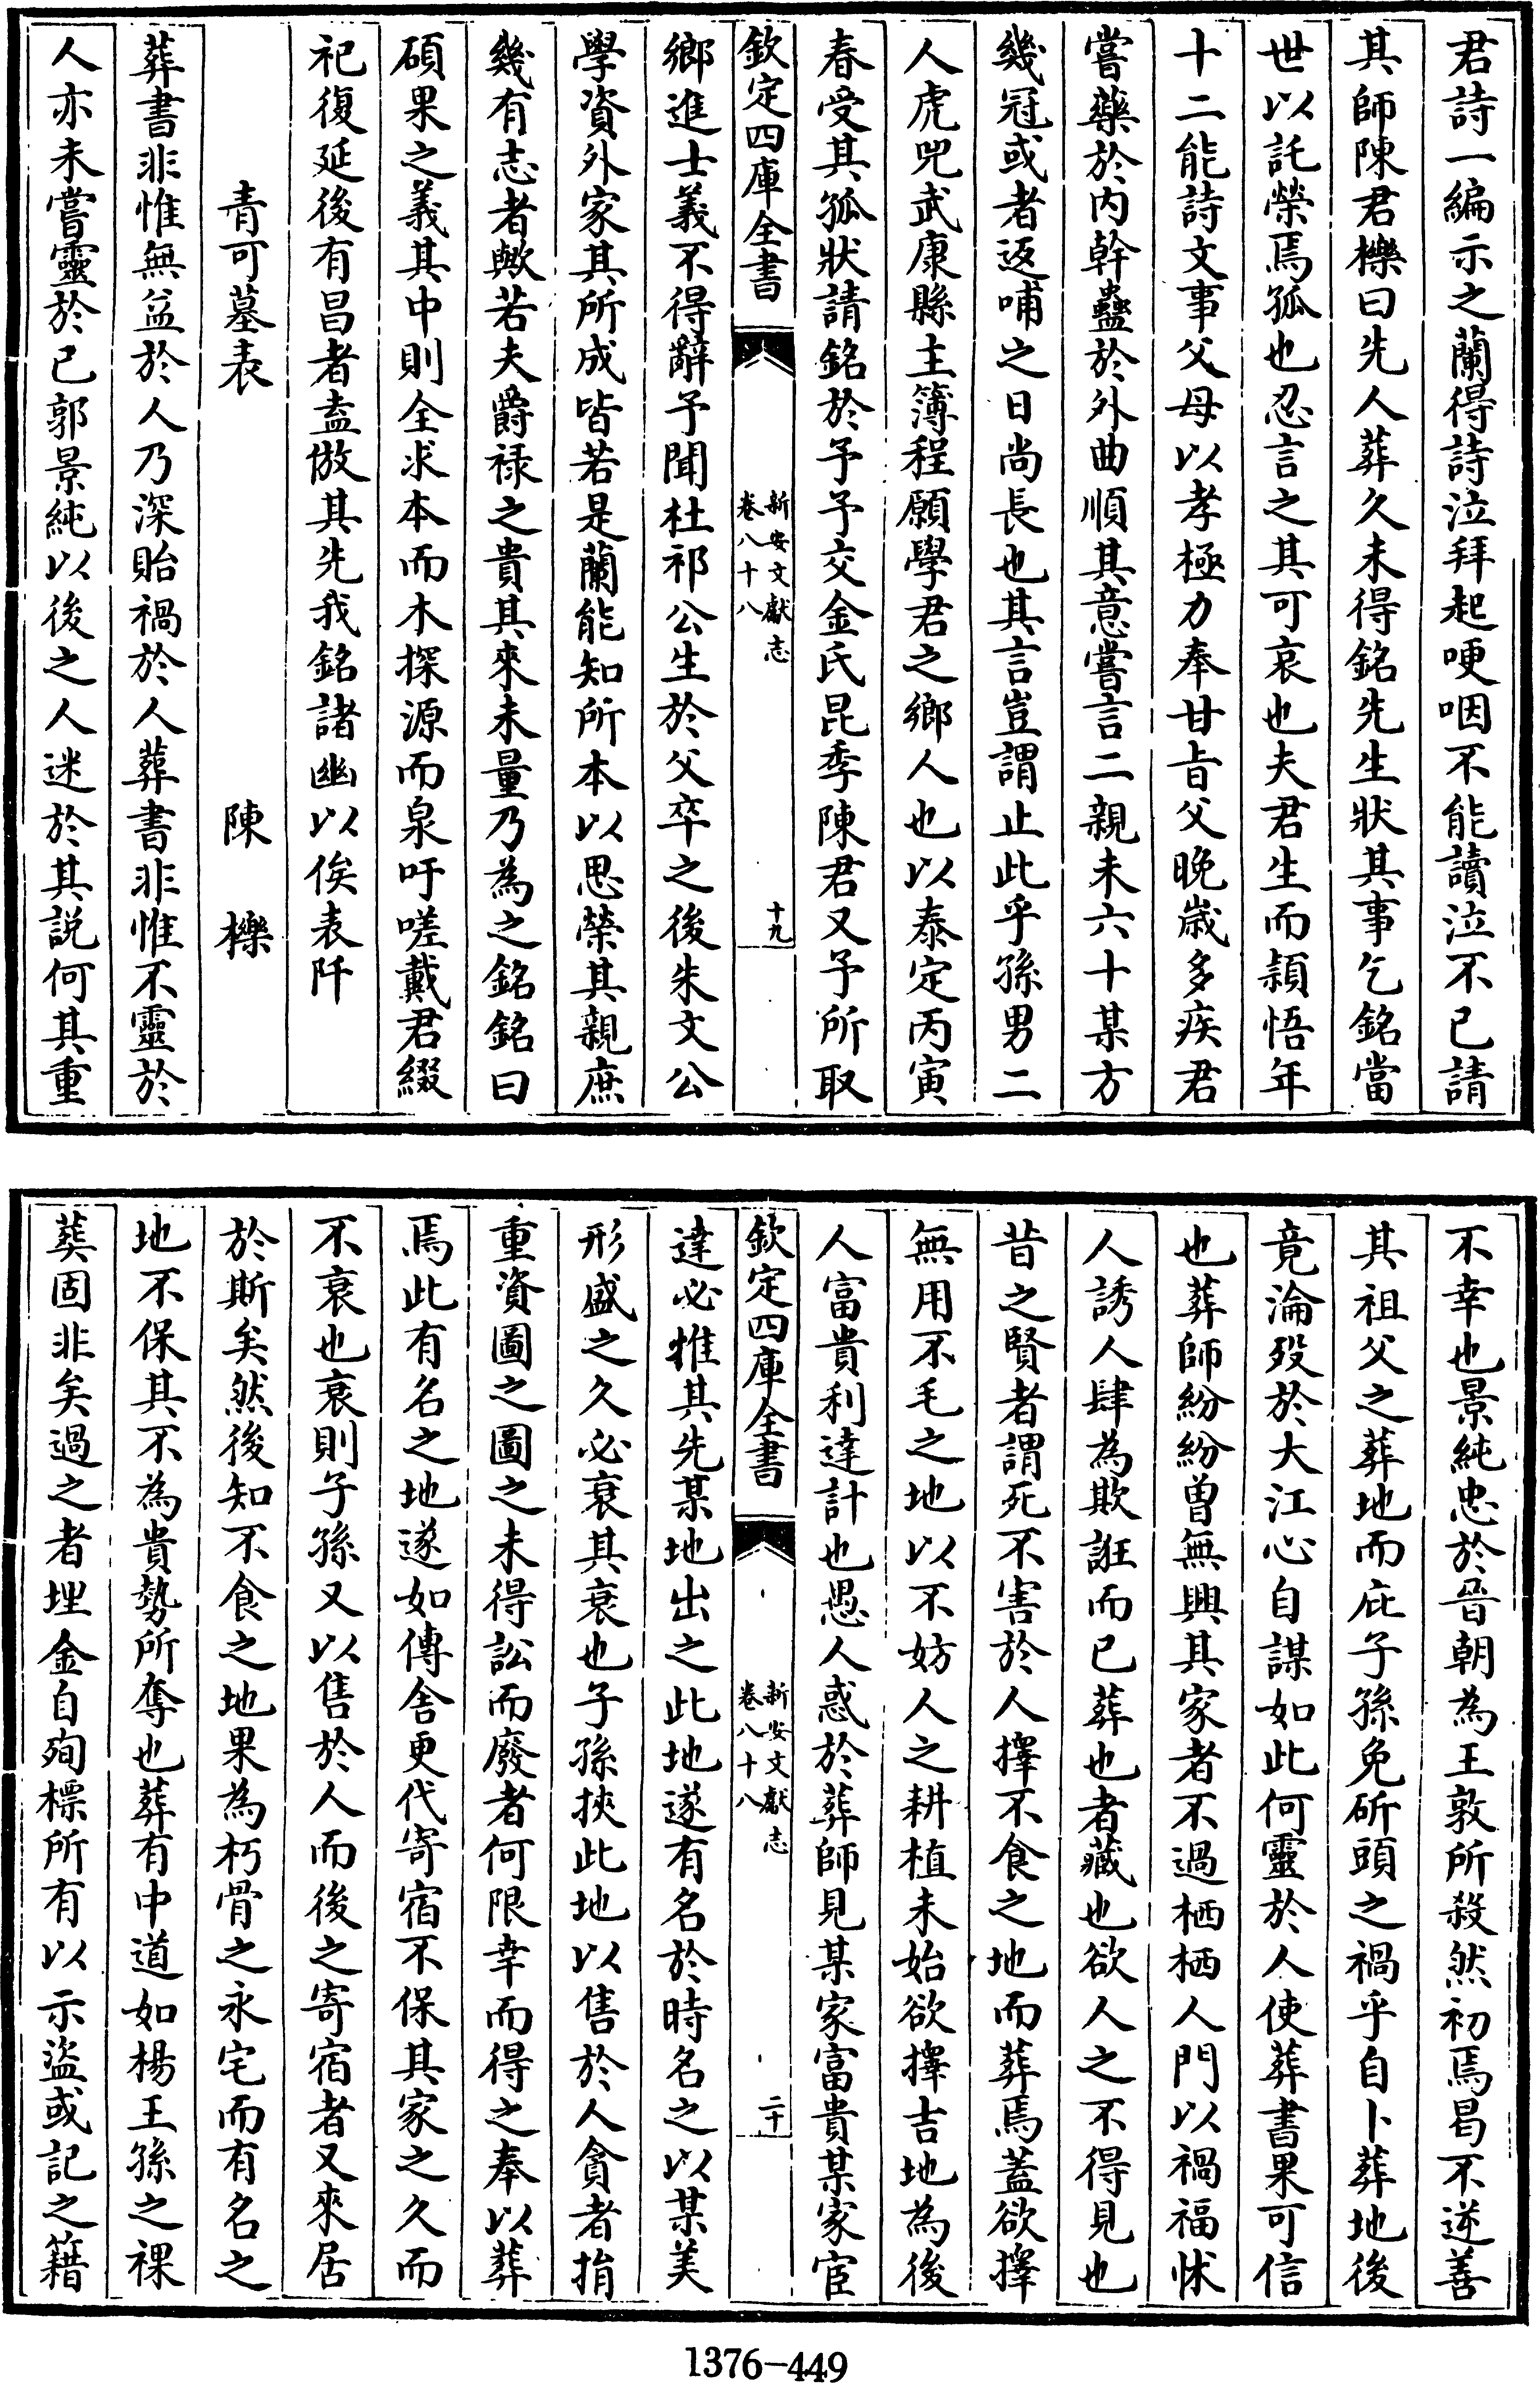 君詩一編示之蘭得詩泣拜起哽咽不能讀泣不已請
其師陳君櫟曰先人葬久未得銘先生狀其事乞銘當
世以託榮焉孤也忍言之其可哀也夫君生而穎悟年
十二能詩文事父母以孝極力奉甘旨父晚歲多疾君
嘗藥於内幹蠱於外曲順其意嘗言二親未六十某方
幾冠或者返哺之日尚長也其言豈謂止此乎孫男二
人虎兕武康縣主簿程願學君之鄉人也以泰定丙寅
春受其孤狀請銘於予予交金氏昆季陳君又予所取
欽定四庫全書
新安文獻志
卷八十八
十九
鄉進士義不得辭予聞杜祁公生於父卒之後朱文公
學資外家其所成皆若是蘭能知所本以思榮其親庶
幾有志者歟若夫爵禄之貴其來未量乃為之銘銘曰
碩果之義其中則全求本而木探源而泉吁嗟戴君綴
祀復延後有昌者盍倣其先我銘諸幽以俟表阡
青可墓表 陳櫟
葬書非惟無益於人乃深貽禍於人葬書非惟不靈於
人亦未嘗靈於已郭景純以後之人迷於其説何其重
不幸也景純忠於晉朝為王敦所殺然初焉曷不逆善
其祖父之葬地而庇子孫免斫頭之禍乎自卜葬地後
竟淪殁於大江心自謀如此何靈於人使葬書果可信
也葬師紛紛曾無興其家者不過栖栖人門以禍福怵
人誘人肆為欺誑而已葬也者藏也欲人之不得見也
昔之賢者謂死不害於人擇不食之地而葬焉蓋欲擇
無用不毛之地以不妨人之耕植未始欲擇吉地為後
人富貴利達計也愚人惑於葬師見某家富貴某家宦
欽定四庫全書
新安文獻志
卷八十八
二十
達必惟其先某地出之此地遂有名於時名之以某美
形盛之久必衰其衰也子孫挾此地以售於人貪者捐
重資圖之圖之未得訟而廢者何限幸而得之奉以葬
焉此有名之地遂如傳舍更代寄宿不保其家之久而
不衰也衰則子孫又以售於人而後之寄宿者又來居
於斯矣然後知不食之地果為朽骨之永宅而有名之
地不保其不為貴勢所奪也葬有中道如楊王孫之裸
葬固非矣過之者埋金自殉標所有以示盜或記之籍
1376-449